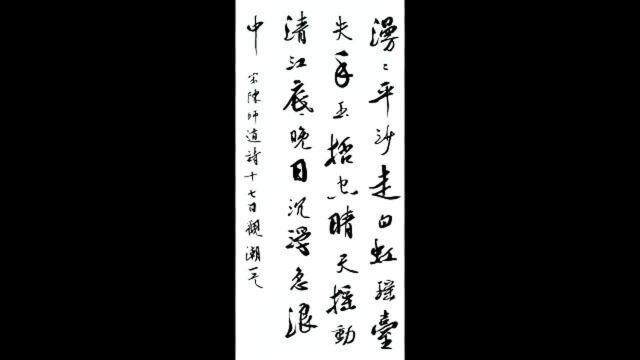 漫〻平沙走白虹瑶臺
失手玉杯空晴天摇動
清江底晚日沉浮急浪
中
宋陳師道詩十七日觀潮